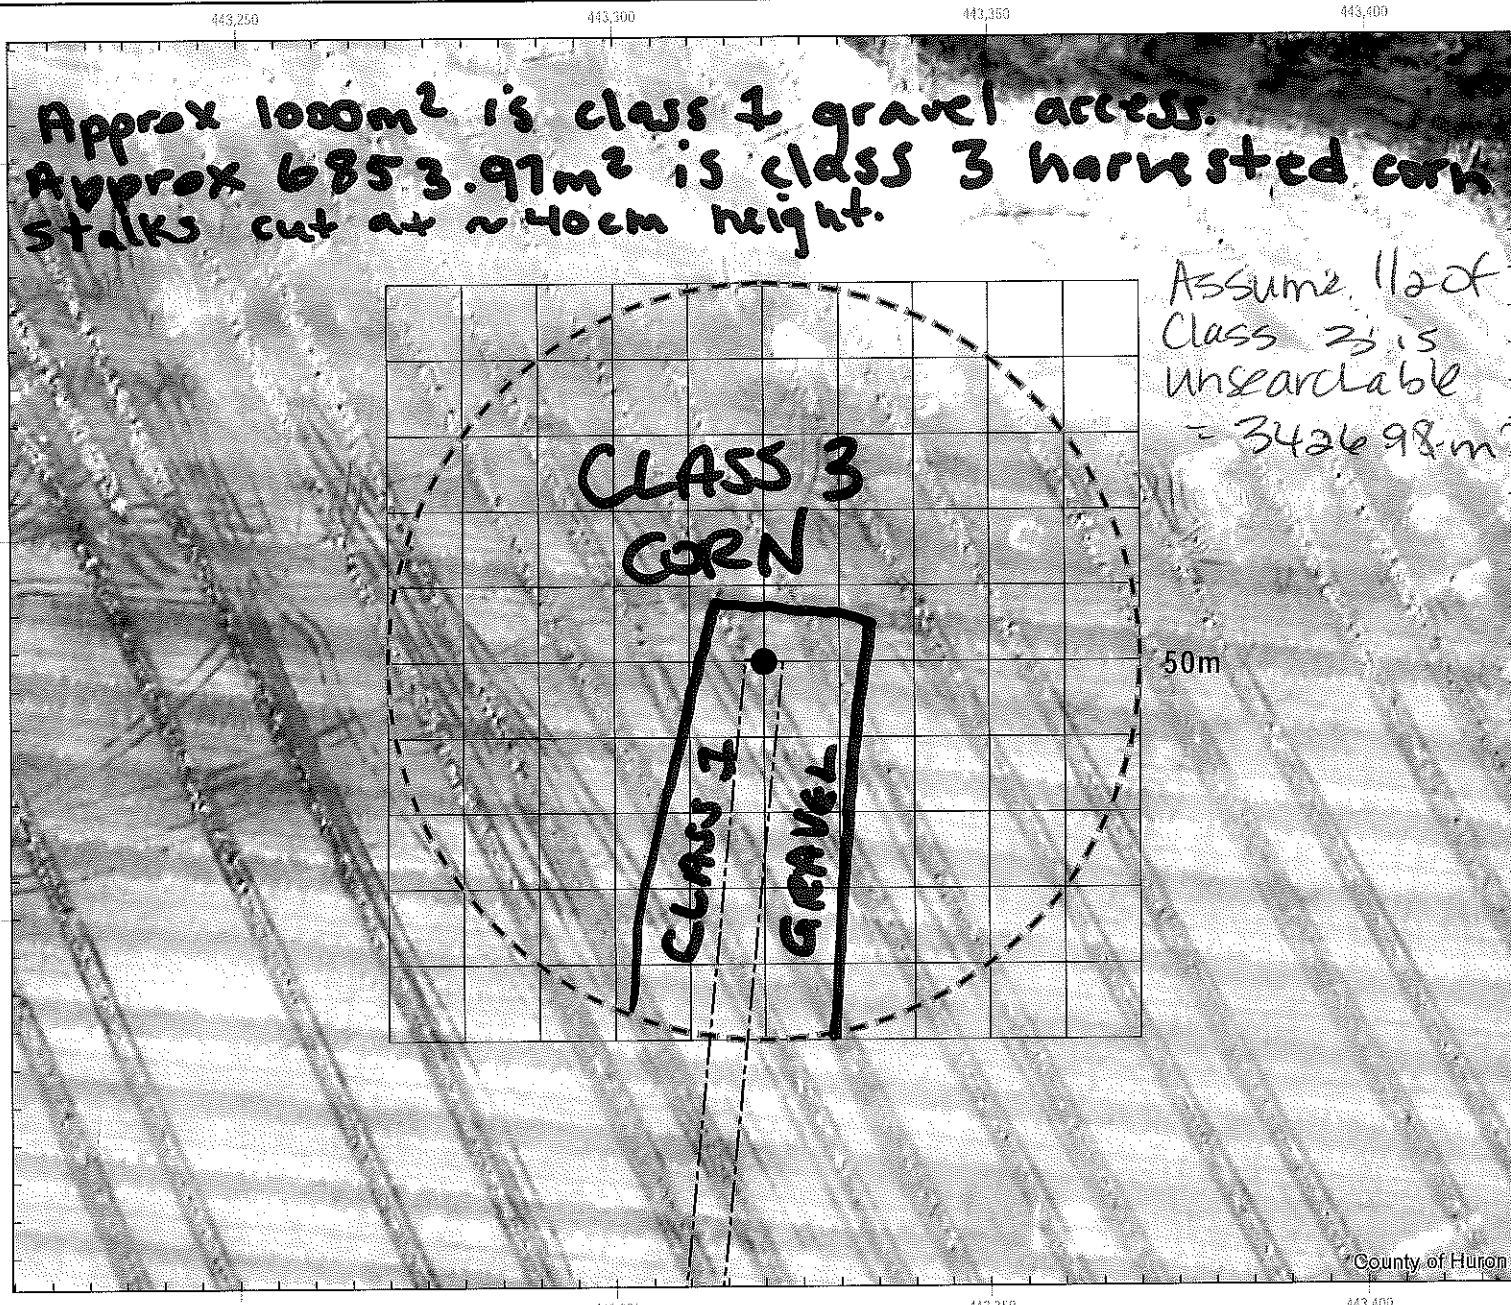 443,250 443,300 443,350 443,400
Approx 1000m² is class 1 gravel access.
Approx 6853.97m² is class 3 harvested corn
stalks cut at ~40cm height.
Assume 1/2 of
Class 3 is
unsearchable
= 3426.98 m²
CLASS 3
CORN
50m
CLASS 1
GRAVEL
County of Huron
443,350 443,400